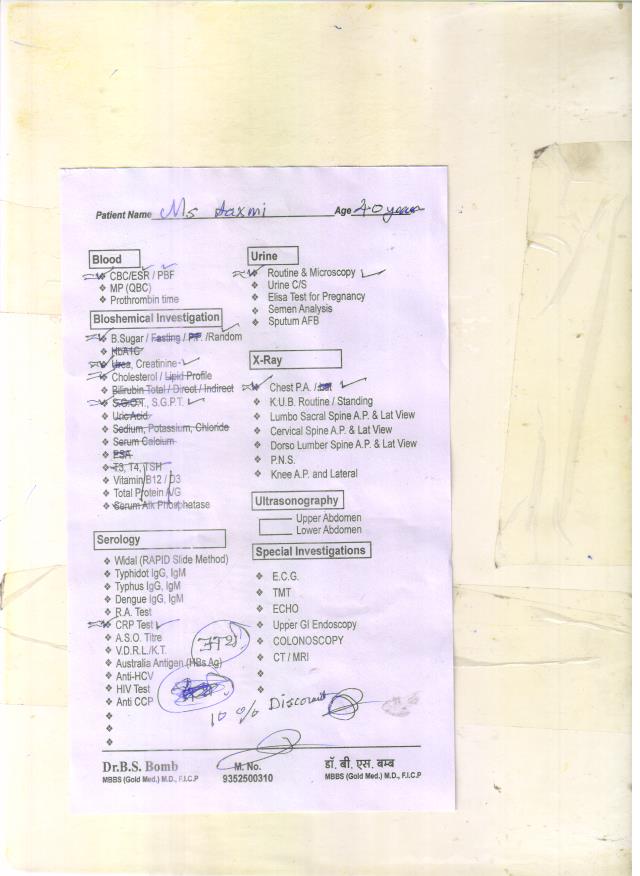 Patient Name Ms Laxmi Age 40 years
Blood
CBC/ESR / PBF
MP (QBC)
Prothrombin time
Bioshemical Investigation
B.Sugar / Fasting / P.P. /Random
HbA1C
Urea, Creatinine
Cholesterol / Lipid Profile
Bilirubin Total / Direct / Indirect
S.G.O.T., S.G.P.T.
Uric Acid
Sodium, Potassium, Chloride
Serum Calcium
PSA
T3, T4, TSH
Vitamin B12 / D3
Total Protein A/G
Serum Alk Phosphatase
Serology
Widal (RAPID Slide Method)
Typhidot IgG, IgM
Typhus IgG, IgM
Dengue IgG, IgM
R.A. Test
CRP Test
A.S.O. Titre
V.D.R.L./K.T.
Australia Antigen (HBs Ag)
Anti-HCV
HIV Test
Anti CCP
Urine
Routine & Microscopy
Urine C/S
Elisa Test for Pregnancy
Semen Analysis
Sputum AFB
X-Ray
Chest P.A. /
K.U.B. Routine / Standing
Lumbo Sacral Spine A.P. & Lat View
Cervical Spine A.P. & Lat View
Dorso Lumber Spine A.P. & Lat View
P.N.S.
Knee A.P. and Lateral
Ultrasonography
Upper Abdomen
Lower Abdomen
Special Investigations
E.C.G.
TMT
ECHO
Upper GI Endoscopy
COLONOSCOPY
CT / MRI
10 % Discount
Dr.B.S. Bomb
MBBS (Gold Med.) M.D., F.I.C.P
M. No.
9352500310
डॉ. बी. एस. बम्ब
MBBS (Gold Med.) M.D., F.I.C.P